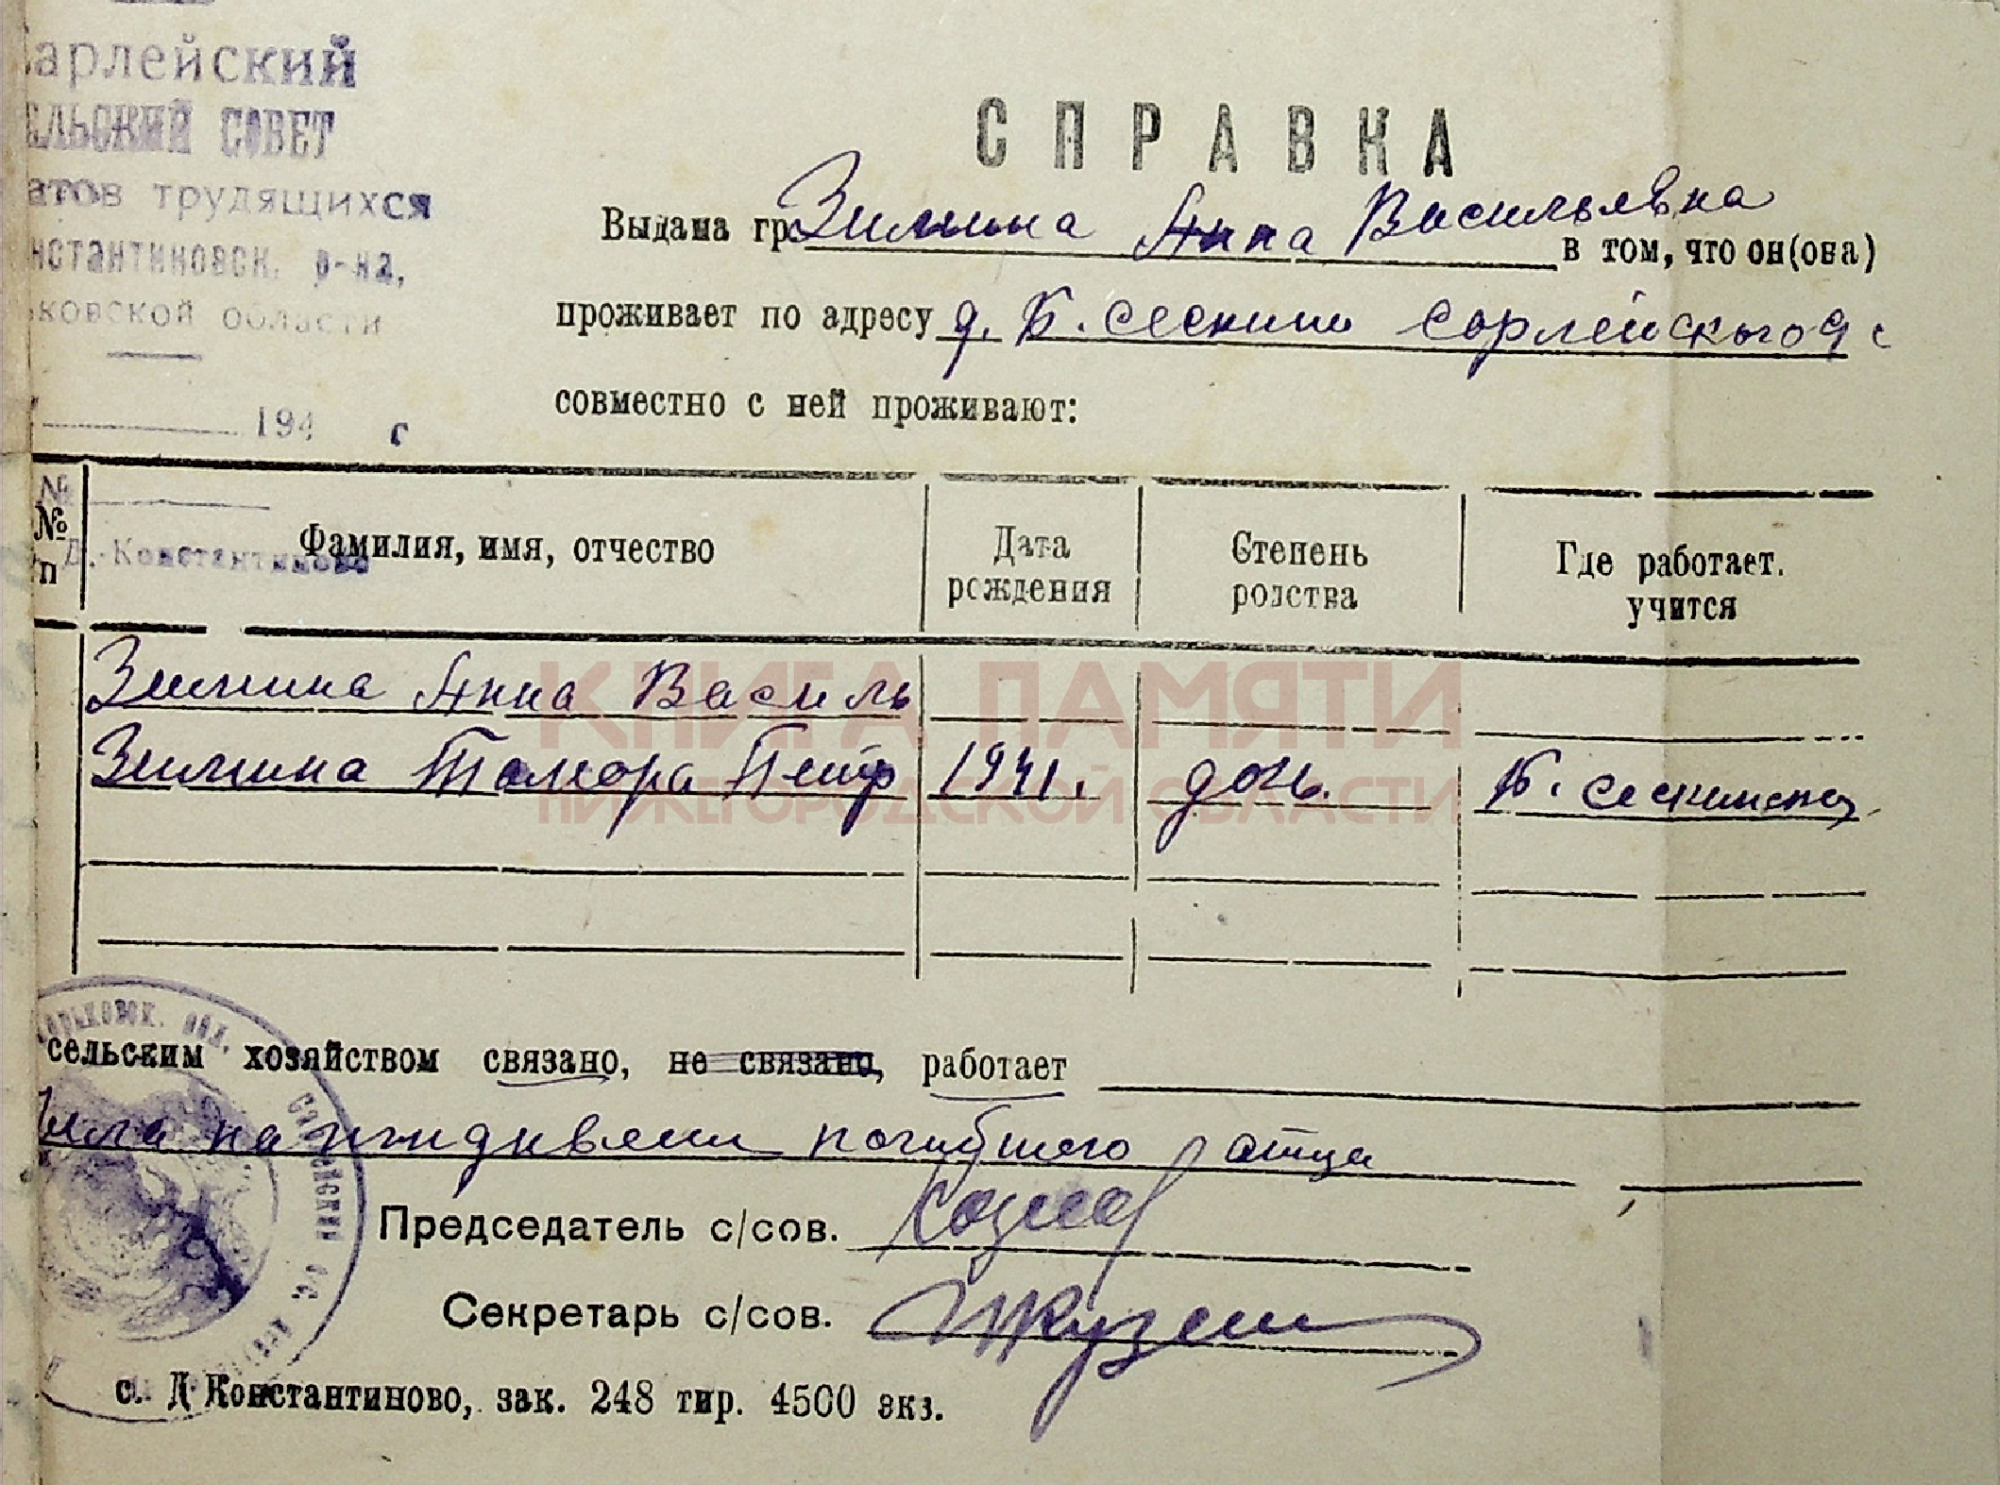 арлейский
ельский совет
атов трудящихся
нстантиновск. р-на,
ьковской области
194 г
СПРАВКА
Выдана гр. Зимина Анна Васильевна в том, что он(она)
проживает по адресу д. Б. Сескино сорлейского
совместно с ней проживают:
№ № п
Д.-Константиново
Фамилия, имя, отчество
Дата рождения
Степень родства
Где работает. учится
Зимина Анна Василь
Зимина Тамора Петр 1941. дочь. Б. Сескинск
КНИГА ПАМЯТИ
НИЖЕГОРОДСКОЙ ОБЛАСТИ
орьковск. обл.
сельским хозяйством связано, не связано, работает
на иждивени погибшего отца
Председатель с/сов.
Секретарь с/сов.
с. Д Константиново, зак. 248 тир. 4500 экз.